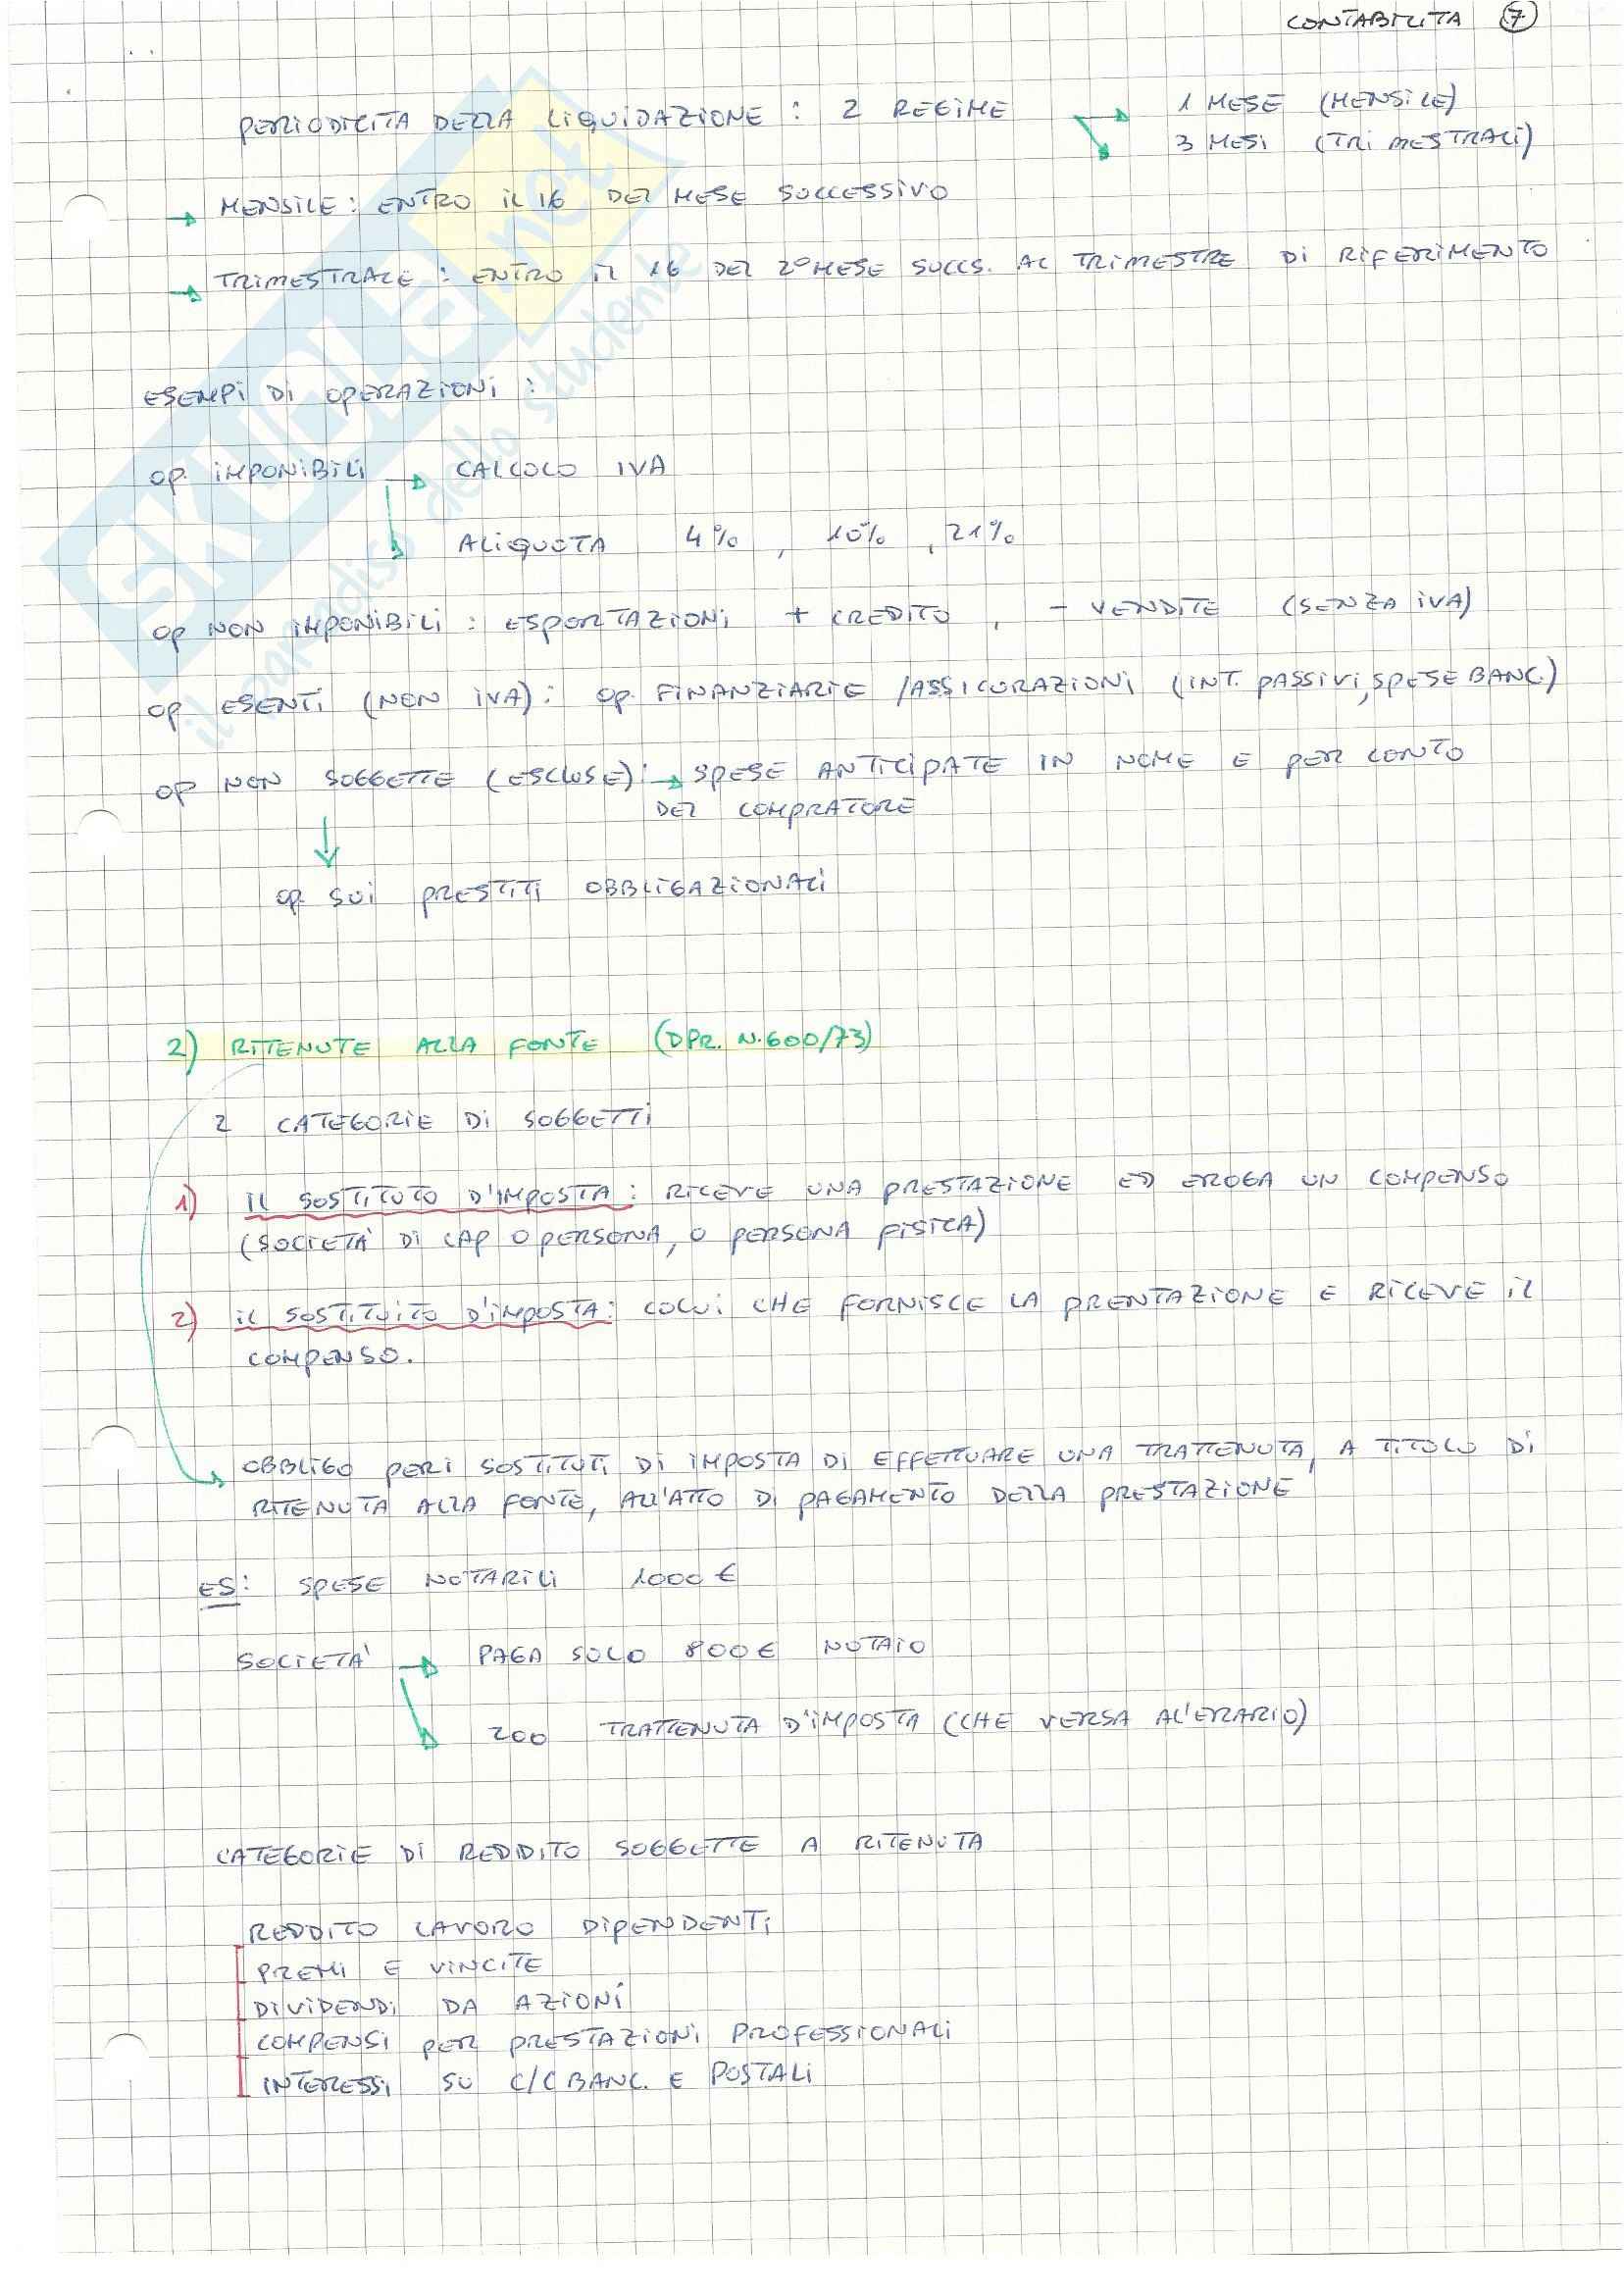 CONTABILITA 7
PERIODICITA DELLA LIQUIDAZIONE : 2 REGIME → 1 MESE (MENSILE)
3 MESI (TRIMESTRALI)
→ MENSILE : ENTRO IL 16 DEL MESE SUCCESSIVO
→ TRIMESTRALE : ENTRO IL 16 DEL 2° MESE SUCCS. AL TRIMESTRE DI RIFERIMENTO
ESEMPI DI OPERAZIONI :
OP. IMPONIBILI → CALCOLO IVA
ALIQUOTA 4% , 10% , 21%
OP NON IMPONIBILI : ESPORTAZIONI + CREDITO , - VENDITE (SENZA IVA)
OP ESENTI (NON IVA) : OP. FINANZIARIE / ASSICURAZIONI (INT. PASSIVI, SPESE BANC.)
OP NON SOGGETTE (ESCLUSE) : → SPESE ANTICIPATE IN NOME E PER CONTO
DEL COMPRATORE
↓
OP. SUI PRESTITI OBBLIGAZIONALI
2) RITENUTE ALLA FONTE (DPR. N.600/73)
2 CATEGORIE DI SOGGETTI
1) IL SOSTITUTO D'IMPOSTA : RICEVE UNA PRESTAZIONE ED EROGA UN COMPENSO
(SOCIETÀ DI CAP O PERSONA, O PERSONA FISICA)
2) IL SOSTITUITO D'IMPOSTA : COLUI CHE FORNISCE LA PRENTAZIONE E RICEVE IL
COMPENSO.
→ OBBLIGO PER I SOSTITUTI DI IMPOSTA DI EFFETTUARE UNA TRATTENUTA, A TITOLO DI
RITENUTA ALLA FONTE, ALL'ATTO DI PAGAMENTO DELLA PRESTAZIONE
ES : SPESE NOTARILI 1000 €
SOCIETA' → PAGA SOLO 800 € NOTAIO
200 TRATTENUTA D'IMPOSTA (CHE VERSA AL'ERARIO)
CATEGORIE DI REDDITO SOGGETTE A RITENUTA
REDDITO LAVORO DIPENDENTI
PREMI E VINCITE
DIVIDENDI DA AZIONI
COMPENSI PER PRESTAZIONI PROFESSIONALI
INTERESSI SU C/C BANC. E POSTALI
SKUOLA.net
il paradiso dello studente